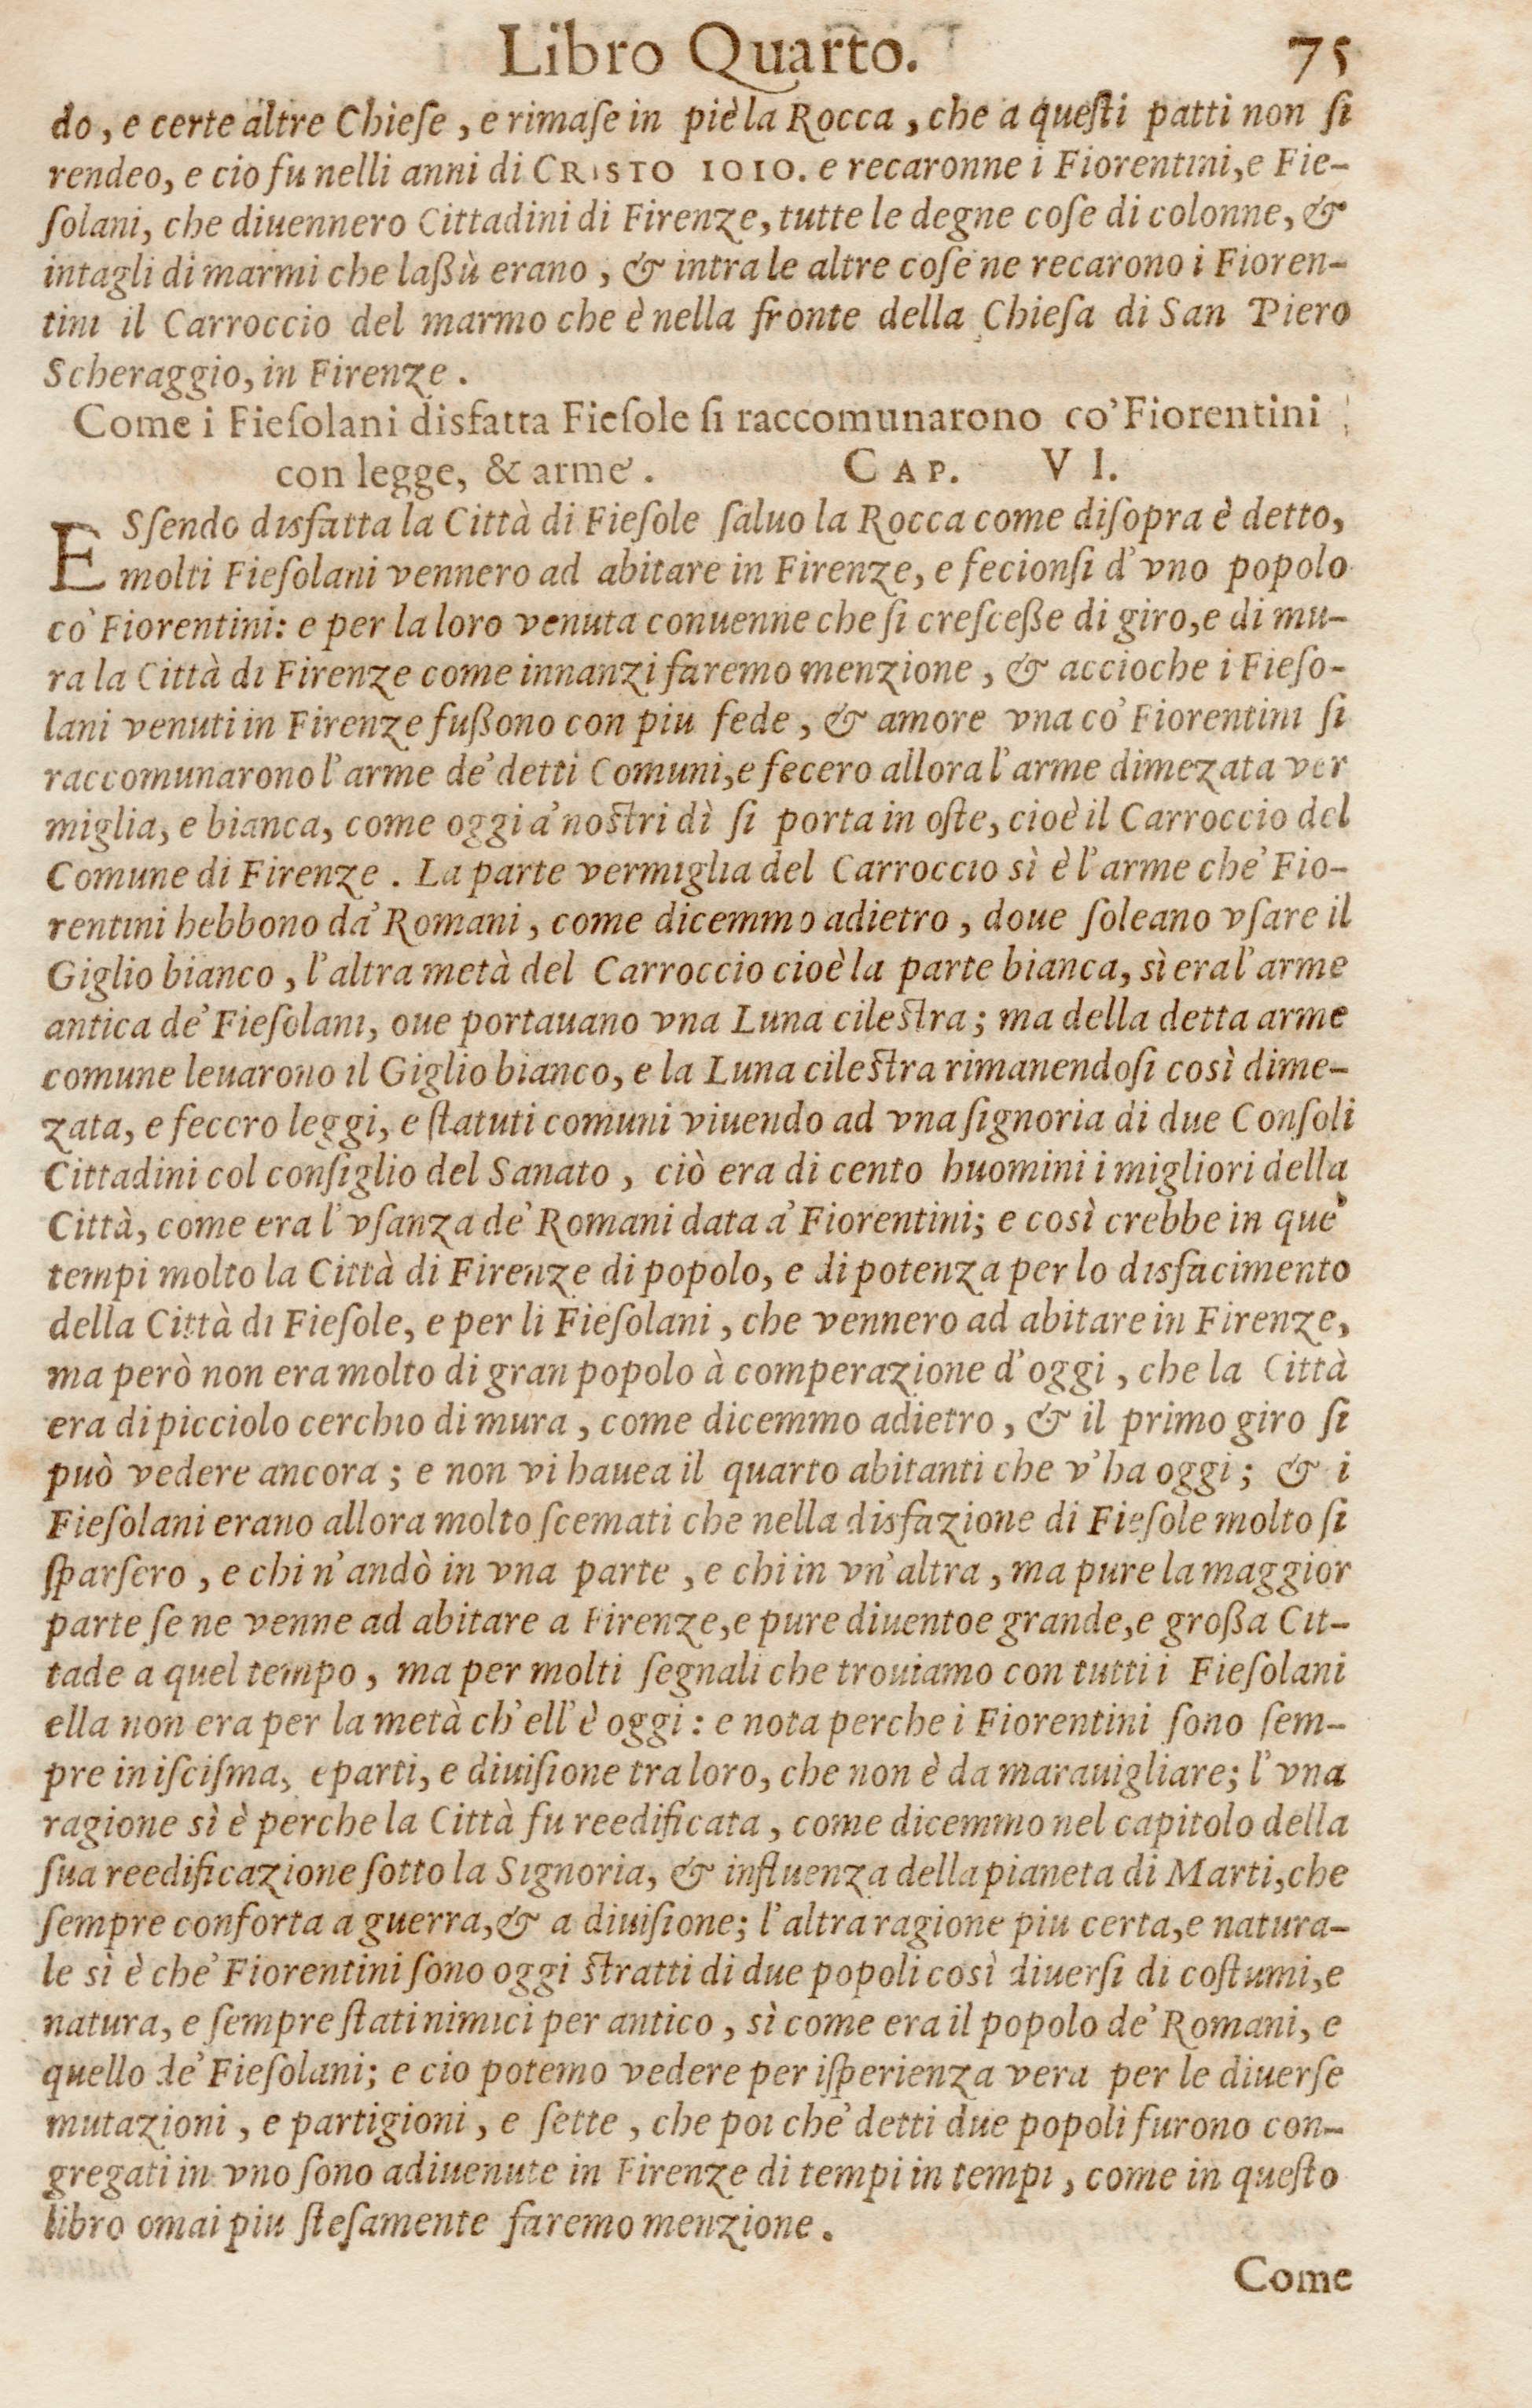 Libro Quarto. 75
do, e certe altre Chieſe, e rimaſe in piè la Rocca, che a queſti patti non ſi
rendeo, e cio fu nelli anni di CRISTO 1010. e recaronne i Fiorentini, e Fie-
ſolani, che diuennero Cittadini di Firenze, tutte le degne coſe di colonne, &
intagli di marmi che laßù erano, & intra le altre coſe ne recarono i Fioren-
tini il Carroccio del marmo che è nella fronte della Chieſa di San Piero
Scheraggio, in Firenze.
Come i Fieſolani disfatta Fieſole ſi raccomunarono co' Fiorentini
con legge, & arme. CAP. VI.
ESſendo disfatta la Città di Fieſole ſaluo la Rocca come diſopra è detto,
molti Fieſolani vennero ad abitare in Firenze, e fecionſi d'vno popolo
co' Fiorentini: e per la loro venuta conuenne che ſi creſceße di giro, e di mu-
ra la Città di Firenze come innanzi faremo menzione, & accioche i Fieſo-
lani venuti in Firenze fußono con piu fede, & amore vna co' Fiorentini ſi
raccomunarono l'arme de' detti Comuni, e fecero allora l'arme dimezata ver
miglia, e bianca, come oggi a' noſtri dì ſi porta in oſte, cioè il Carroccio del
Comune di Firenze. La parte vermiglia del Carroccio sì è l'arme che' Fio-
rentini hebbono da' Romani, come dicemmo adietro, doue ſoleano vſare il
Giglio bianco, l'altra metà del Carroccio cioè la parte bianca, sì era l'arme
antica de' Fieſolani, oue portauano vna Luna cileſtra; ma della detta arme
comune leuarono il Giglio bianco, e la Luna cileſtra rimanendoſi così dime-
zata, e fecero leggi, e ſtatuti comuni viuendo ad vna ſignoria di due Conſoli
Cittadini col conſiglio del Sanato, ciò era di cento huomini i migliori della
Città, come era l'vſanza de' Romani data a' Fiorentini; e così crebbe in que'
tempi molto la Città di Firenze di popolo, e di potenza per lo disfacimento
della Città di Fieſole, e per li Fieſolani, che vennero ad abitare in Firenze,
ma però non era molto di gran popolo à comperazione d'oggi, che la Città
era di picciolo cerchio di mura, come dicemmo adietro, & il primo giro ſi
può vedere ancora; e non vi hauea il quarto abitanti che v'ha oggi; & i
Fieſolani erano allora molto ſcemati che nella disfazione di Fieſole molto ſi
ſparſero, e chi n'andò in vna parte, e chi in vn'altra, ma pure la maggior
parte ſe ne venne ad abitare a Firenze, e pure diuentoe grande, e großa Cit-
tade a quel tempo, ma per molti ſegnali che trouiamo con tutti i Fieſolani
ella non era per la metà ch'ell'è oggi: e nota perche i Fiorentini ſono ſem-
pre in iſciſma, e parti, e diuiſione tra loro, che non è da marauigliare; l'vna
ragione sì è perche la Città fu reedificata, come dicemmo nel capitolo della
ſua reedificazione ſotto la Signoria, & influenza della pianeta di Marti, che
ſempre conforta a guerra, & a diuiſione; l'altra ragione piu certa, e natura-
le sì è che' Fiorentini ſono oggi ſtratti di due popoli così diuerſi di coſtumi, e
natura, e ſempre ſtati nimici per antico, sì come era il popolo de' Romani, e
quello de' Fieſolani; e cio potemo vedere per iſperienza vera per le diuerſe
mutazioni, e partigioni, e ſette, che poi che' detti due popoli furono con-
gregati in vno ſono adiuenute in Firenze di tempi in tempi, come in queſto
libro omai piu ſteſamente faremo menzione.
Come